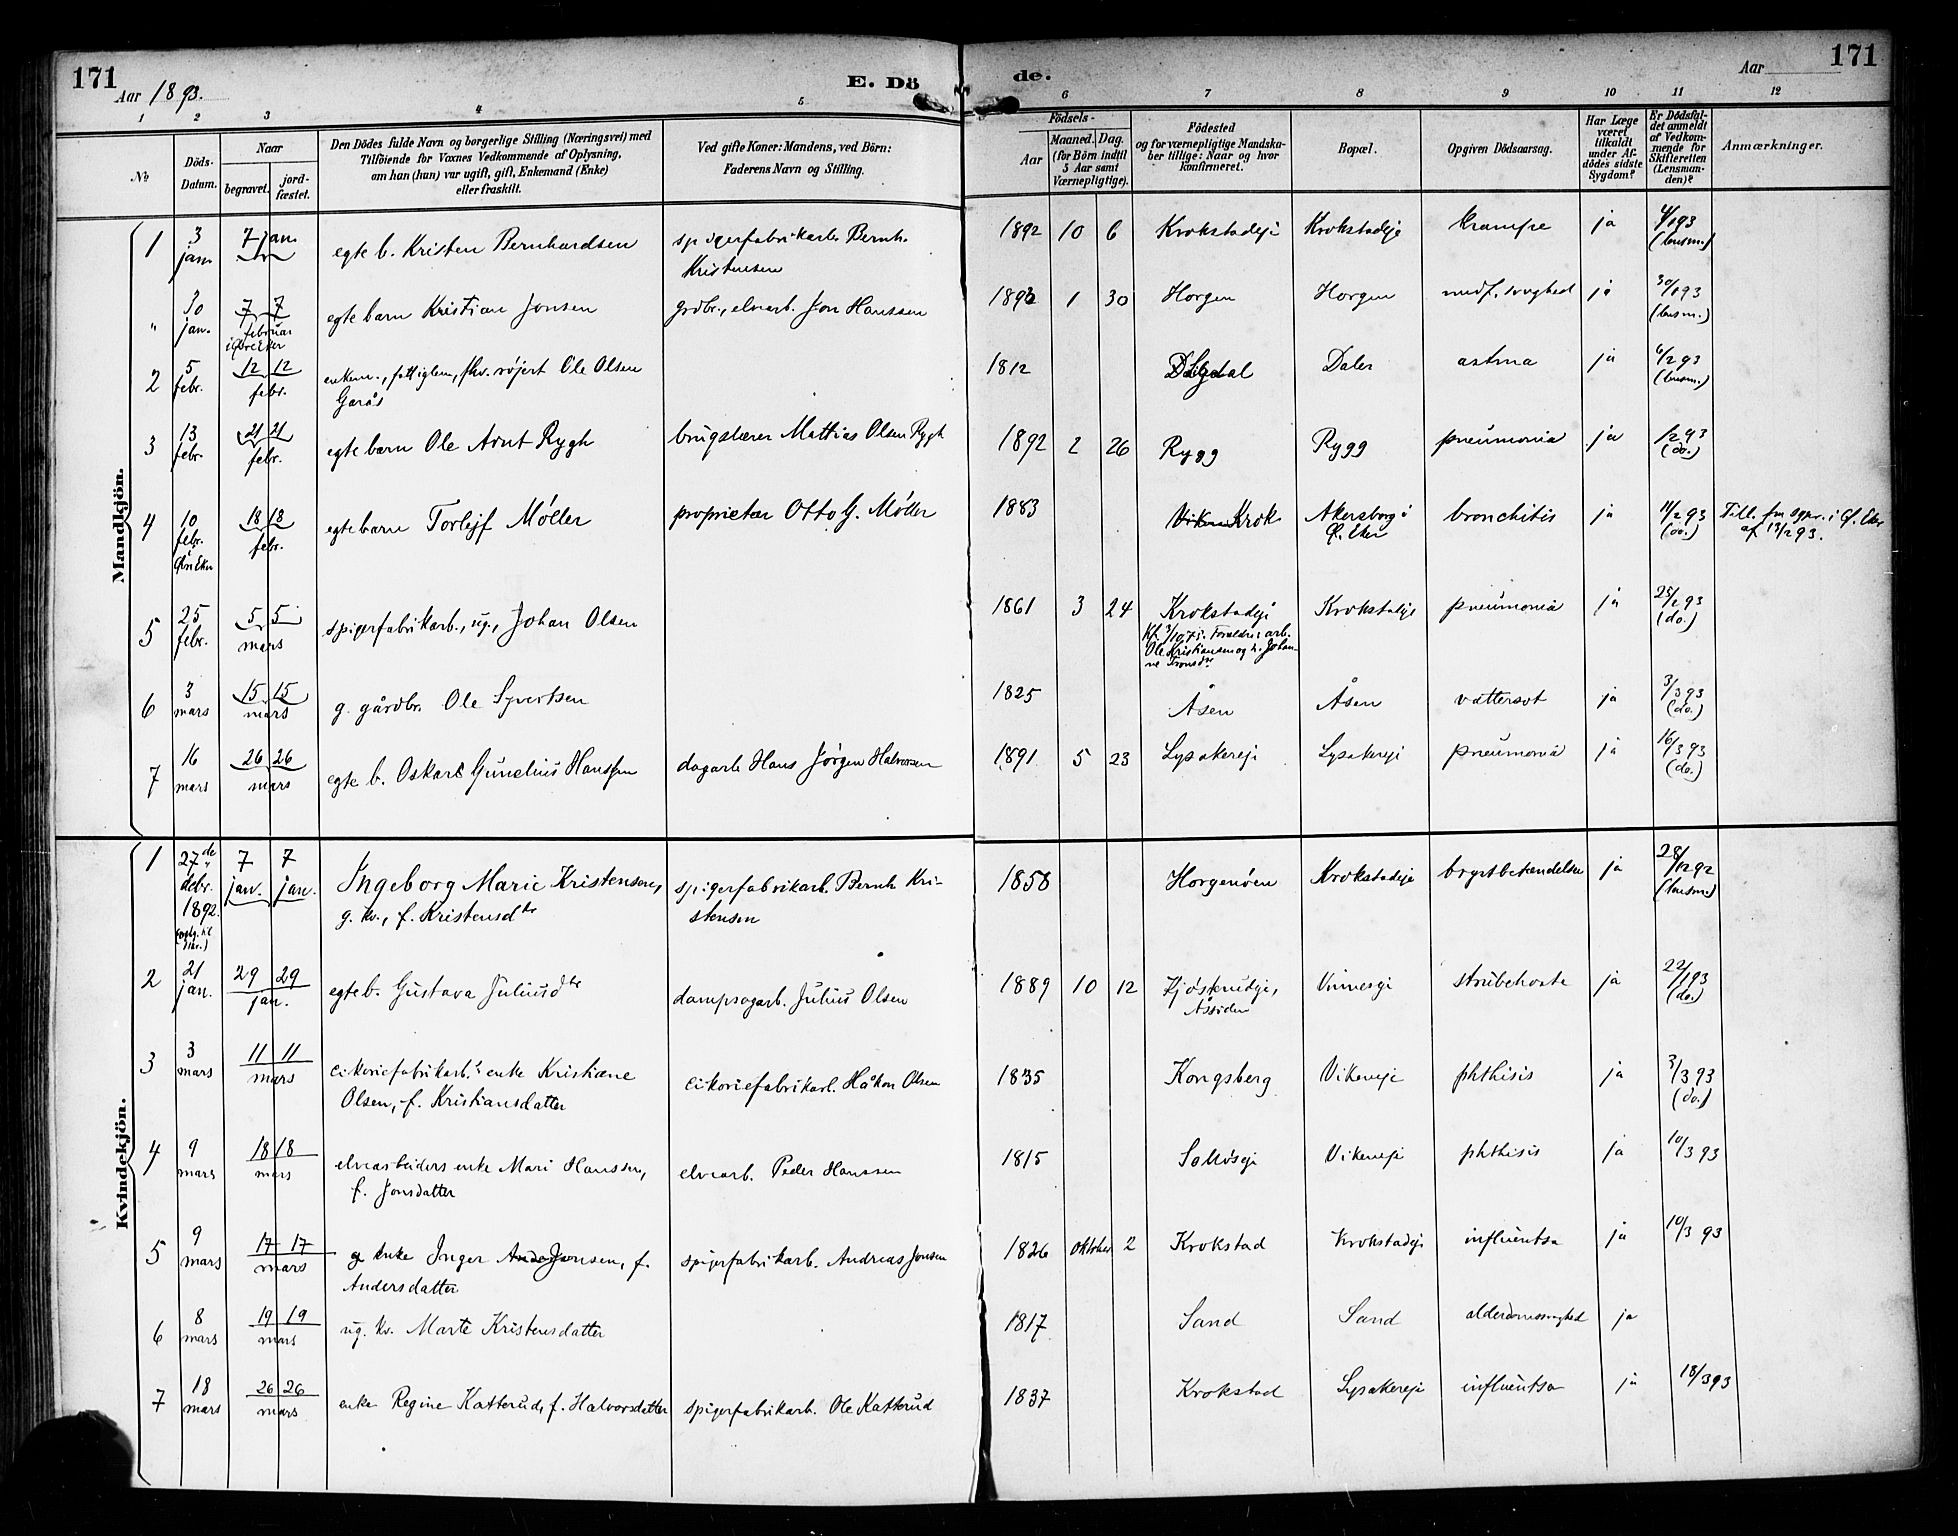 171
Aar 1893.
E. Dö
de.
Aar
171
1 2 3 4 5 6 7 8 9 10 11 12
№
Döds-Datum.
Naar
begravet.
jord-fæstet.
Den Dödes fulde Navn og borgerlige Stilling (Næringsvei) med
Tilföiende for Voxnes Vedkommende af Oplysning,
om han (hun) var ugift, gift, Enkemand (Enke)
eller fraskilt.
Ved gifte Koner: Mandens, ved Börn:
Faderens Navn og Stilling.
Födsels-
Aar
Maaned.
Dag.
(for Börn indtil
5 Aar samt
Værnepligtige).
Födested
og for værnepligtige Mandska-
ber tillige: Naar og hvor
konfirmeret.
Bopæl.
Opgiven Dödsaarsag.
Har Læge
været
tilkaldt
under Af-
dödes sidste
Sygdom?
Er Dödsfal-
det anmeldt
af Vedkom-
mende for
Skifteretten
(Lensman-
den)?
Anmærkninger.
Mandkjön.
1 3 jan. 7 jan. egte b. Kristen Bernhardsen spigerfabrikarb. Bernh. Kristensen 1892 10 6 Krokstadeje Krokstadeje krampe ja 4/1 93 (lensm.)
" 30 jan. 7 7 februar i Øvre Eker egte barn Kristian Jonsen grdbr., elvearb. Jon Hanssen 1893 1 30 Horgen Horgen medf. svaghed ja 30/1 93 (lensm.)
2 5 febr. 12 12 febr. enkem., fattiglem, fhv. Ole Olsen Garås 1812 Daler astma ja 6/2 93 (lensm.)
3 13 febr. 21 21 febr. egte barn Ole Arnt Rygh brugslærer Mattias Olsen Rygh 1892 2 26 Rygg Rygg pneumonia ja 93 (do.)
4 10 febr. Øvre Eker 18 18 febr. egte barn Torlejf Møller proprietær Otto G. Møller 1883 Krok Akersborg i Ø. Eker bronchitis ja 11/2 93 (do.) Till. fra sgpr. i Ø. Eker af 13/2 93.
5 25 febr. 5 5 mars spigerfabrikarb., ug., Johan Olsen 1861 3 24 Krokstadeje Kf. Foreldre: arb. Ole Kristiansen og h. Johanne Tronsdr Krokstadeje pneumonia ja 25/2 93 (do.)
6 3 mars 15 15 mars g. gårdbr. Ole Syvertsen 1825 Åsen Åsen vattersot ja 3/3 93 (do.)
7 16 mars 26 26 mars egte b. Oskar Gunelius Hanssen dagarb. Hans Jørgen Halvorsen 1891 5 23 Lysakereje Lysakereje pneumonia ja 16/3 93 (do.)
Kvindekjön.
1 27de debr. 1892 7 jan. 7 jan. Ingeborg Marie Kristensen, g. kv., f. Kristensdtr spigerfabrikarb. Bernh. Kristensen 1858 Horgenøen Krokstadeje brystbetendelse ja 28/12 92 (lensm.)
2 21 jan. 29 29 jan. egte b. Gustava Juliusdtr dampsagarb. Julius Olsen 1889 10 12 Åssiden Vinneseje strubehoste ja 22/1 93 (do.)
3 3 mars 11 11 mars cikoriefabrikarb.s enke Kristiane Olsen, f. Kristiansdatter cikoriefabrikarb. Håkon Olsen 1835 Kongsberg Vikeneje phthisis ja 3/3 93 (do.)
4 9 mars 18 18 mars elvearbeiders enke Mari Hanssen, f. Jonsdatter elvearb. Peder Hanssen 1815 Vikeneje phthisis ja 10/3 93
5 9 mars 17 17 mars g enke Inger Jonsen, f. Andersdatter spigerfabrikarb. Andreas Jonsen 1826 oktober 2 Krokstad Krokstadeje influentsa ja 10/3 93
6 8 mars 19 19 mars ug. kv. Marte Kristensdatter 1817 Sand Sand alderdomssvaghed ja
7 18 mars 26 26 mars enke Regine Katterud, f. Halvorsdatter spigerfabrikarb. Ole Katterud 1837 Krokstad Lysakereje influentsa ja 18/3 93